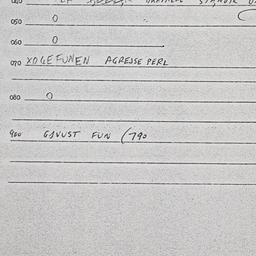 050 0
060 0
070 XOGEFUNEN AGRESSE PERL
080 0
900 GJVUST FUN (790